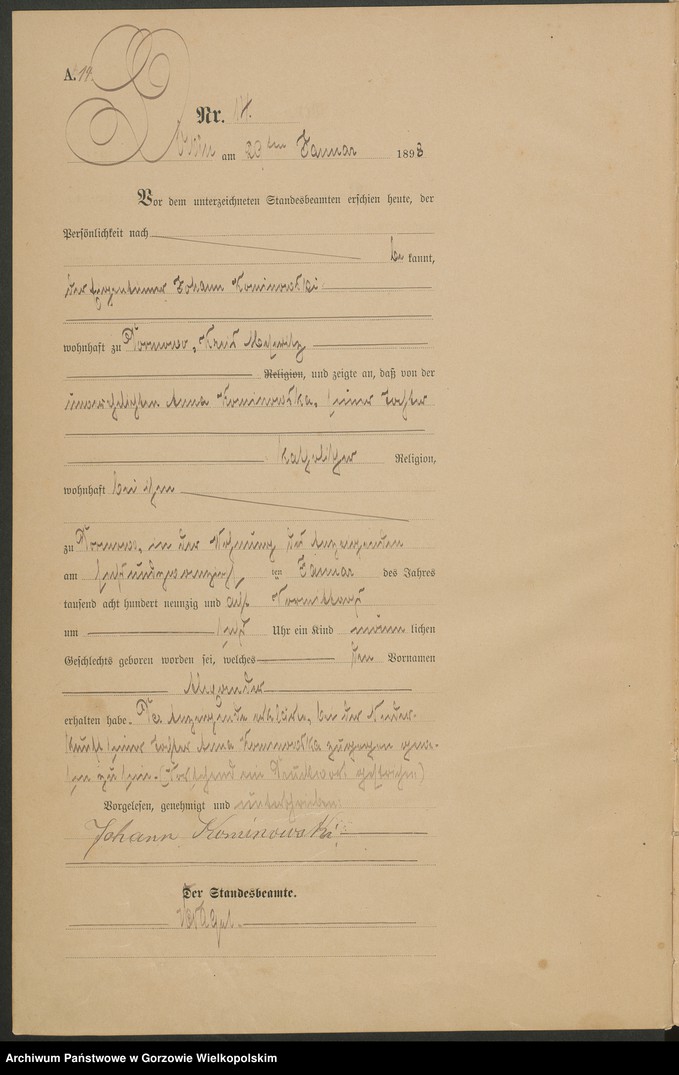 A. 14.
Nr. 14.
am 23ten Januar 1898
Vor dem unterzeichneten Standesbeamten erschien heute, der
Persönlichkeit nach
be kannt,
der Johann Kominowski
wohnhaft zu Kreis Meseritz
Religion, und zeigte an, daß von der
unverehelichten Anna Kominowska, seiner Tochter
katholischer Religion,
wohnhaft bei ihm
zu in der Wohnung des Anzeigenden
am ten Januar des Jahres
tausend acht hundert neunzig und acht Vormittags
um Uhr ein Kind männ lichen
Geschlechts geboren worden sei, welches den Vornamen
Alexander
erhalten habe. Der Anzeigende erklärte, bei der Nieder-
kunft seiner Tochter Anna Kominowska zugegen gewe-
sen zu sein. (Vorstehend ein Druckwort gestrichen)
Vorgelesen, genehmigt und unterschrieben
Johann Kominowski
Der Standesbeamte.
Archiwum Państwowe w Gorzowie Wielkopolskim